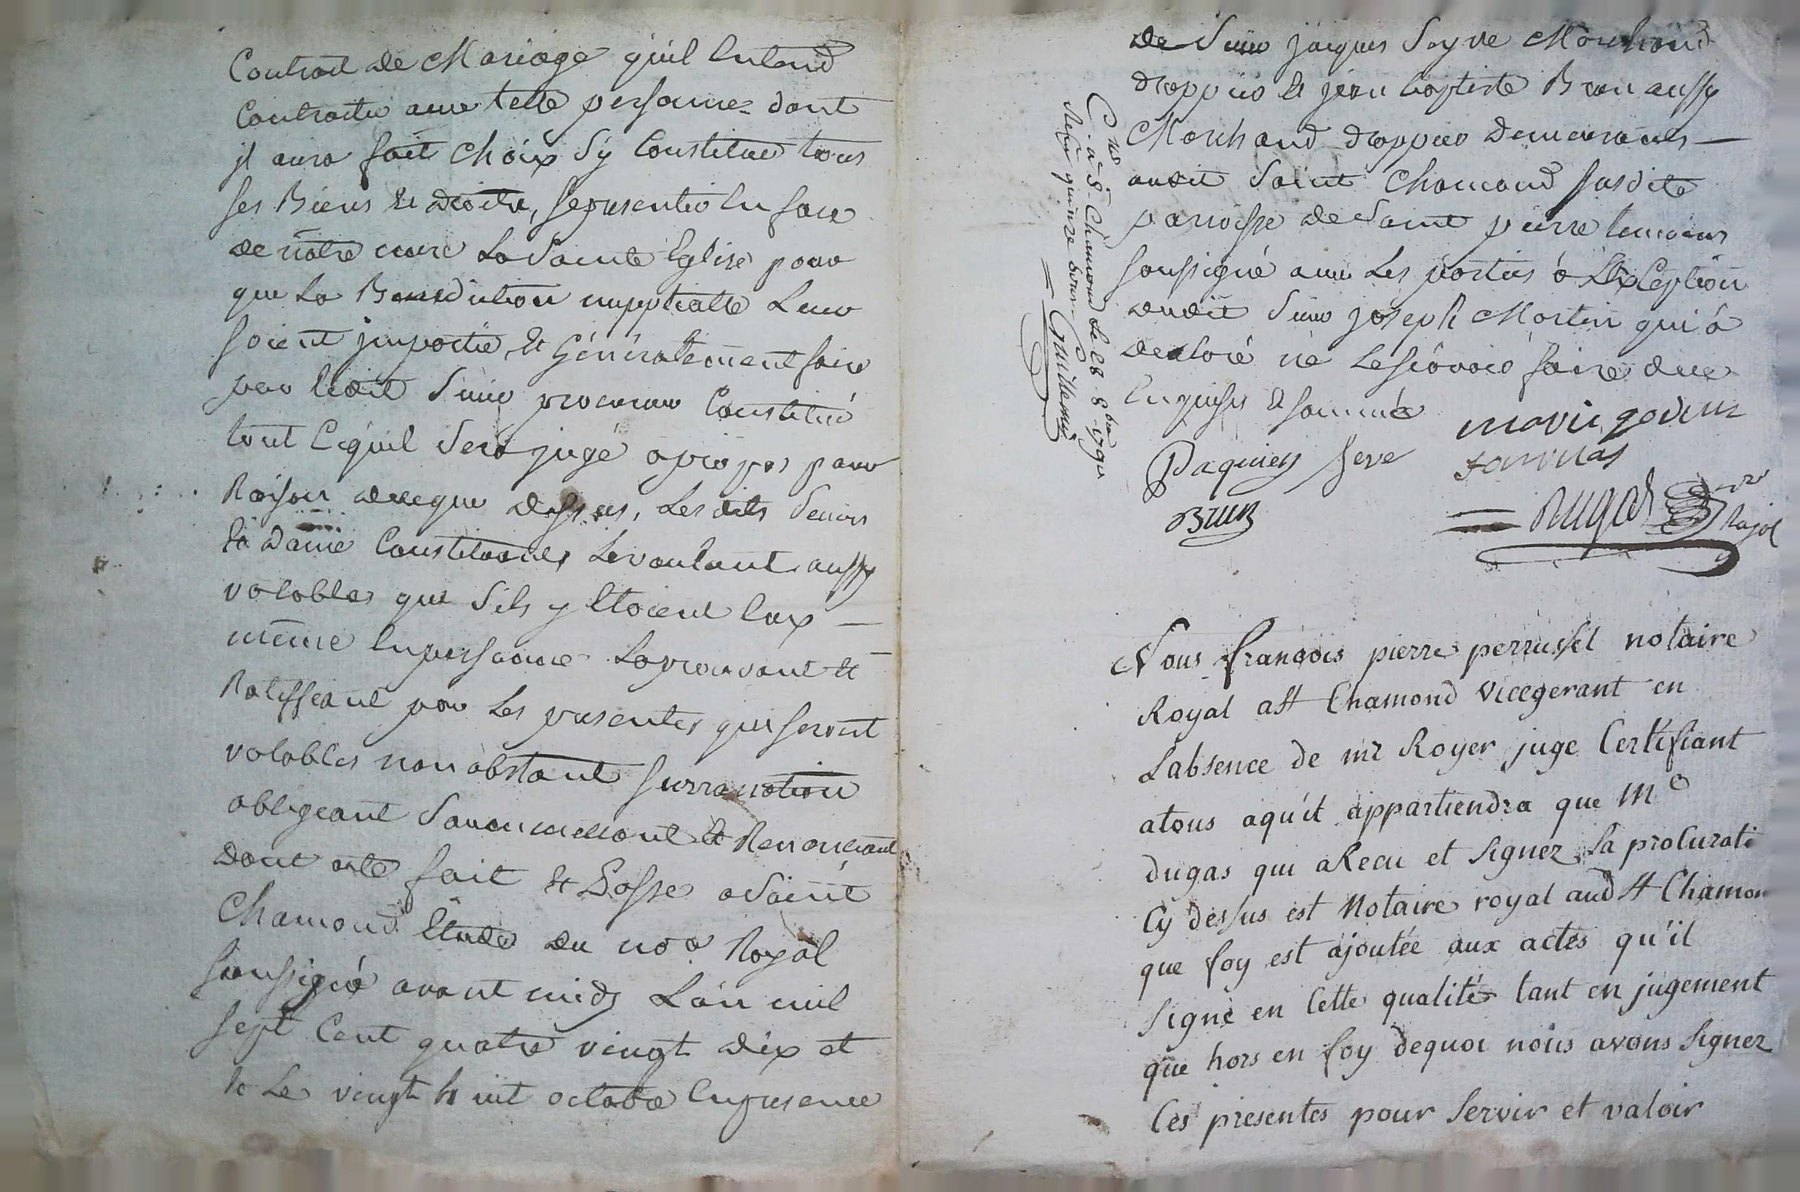 Contrat de Mariage qu'il Entend
Contracter avec telle personne dont
jl aura fait choix S'y Constituer tous
ses Biens et droits, se presenter En face
de nôtre mere La Sainte Eglise pour
que La Benediction nupptialle Leur
soient jmpartie, Et Généralement faire
par ledit Sieur procureur Constitué
tout Ce qu'il Sera jugé apropos pour
Raison de ce que dessus, Les dits Sieurs
Et Dame Constituants Le voulant aussy
valables que S'ils y Etoient Eux —
même En personne Laprouvant Et
Ratiffiant par Les presentes qui seront
valables non obstant surranation
obligeant Soumettant Et Renonceant
dont acte fait Et Passé a Saint
Chamond Etude du no.re Royal
soussigné avant midy L'an mil
sept Cent quatre vingt dix et
le Le vingt huit octobre En presence
de Sieur jacques Seyve Marchand
drappier Et jean baptiste Brun aussy
Marchand drappier demeurants —
audit Saint Chamond susdite
paroisse de Saint pierre temoins
soussigné avec Les parties à L'Exception
dudit Sieur joseph Martin qui à
declaré ne Le sçavoir faire de ce
Enquis Et sommé
C. à S.t Chamond le 28 8.bre 1790
Reçu quinze sous Guillemin
Paquiey Seve marie godin
Brun
Dugas
Nous françois pierre perrussel notaire
Royal a St Chamond vicegerant en
Labsence de mr Royer juge Certifiant
atous aqu'it appartiendra que Me
dugas qui a Recu et signez sa procurati
Cy dessus est Notaire royal aud St Chamon
que foy est ajoutée aux actes qu'il
signe en Cette qualité tant en jugement
que hors en foy dequoi nous avons signez
Ces presentes pour servir et valoir